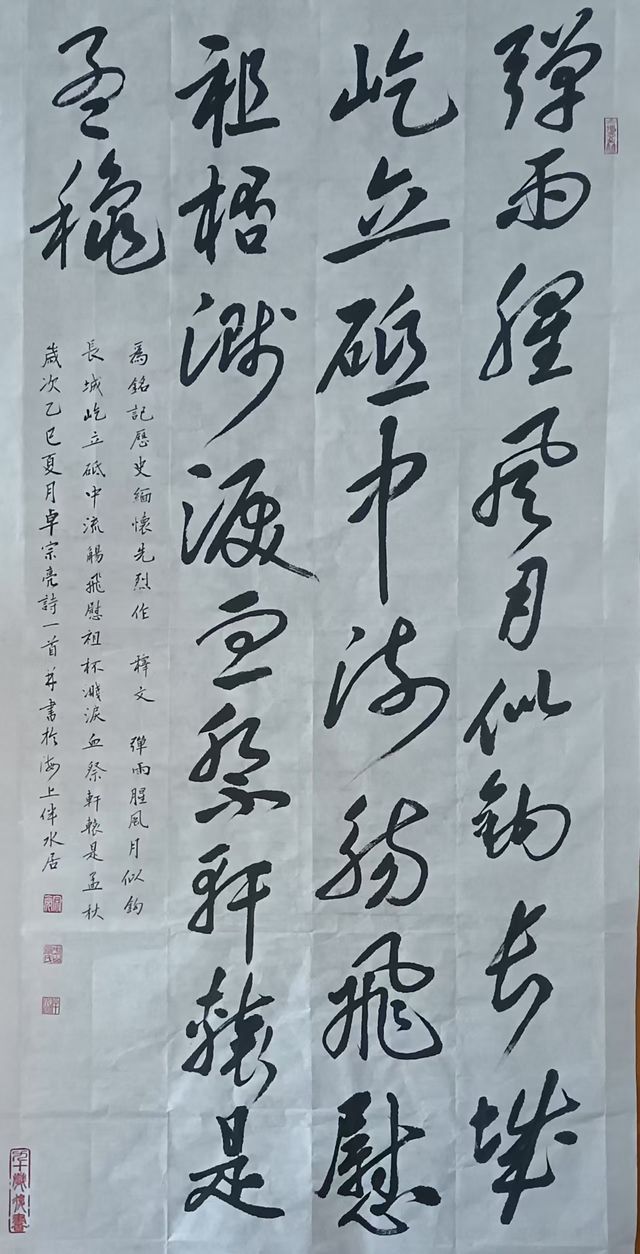 彈雨腥風月似鈎長城
屹立砥中流觴飛慰
祖桮濺淚血祭軒轅是
孟穐
爲銘記歷史緬懷先烈作 釋文 彈雨腥風月似鈎
長城屹立砥中流觴飛慰祖杯濺淚血祭軒轅是孟秋
歲次乙巳夏月卓宗亮詩一首并書於海上伴水居